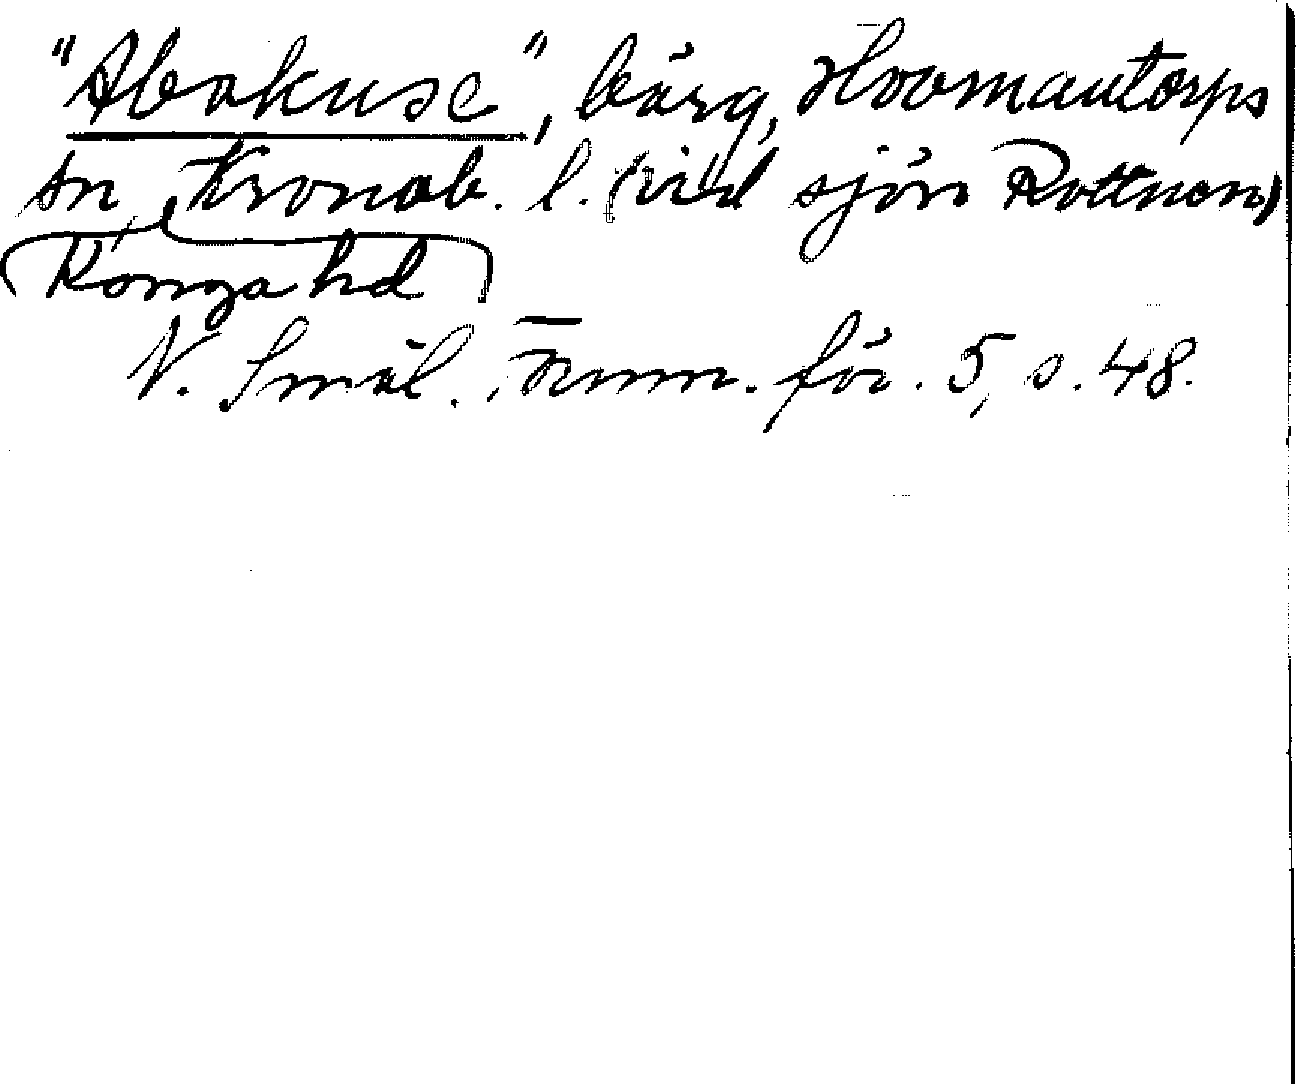 "Abakuse", bärg, Hovmantorps
sn, Kronob. l. (vid sjön Rottnen)
Konga hd
N. Smål. Fmm. för. 5, s. 48.